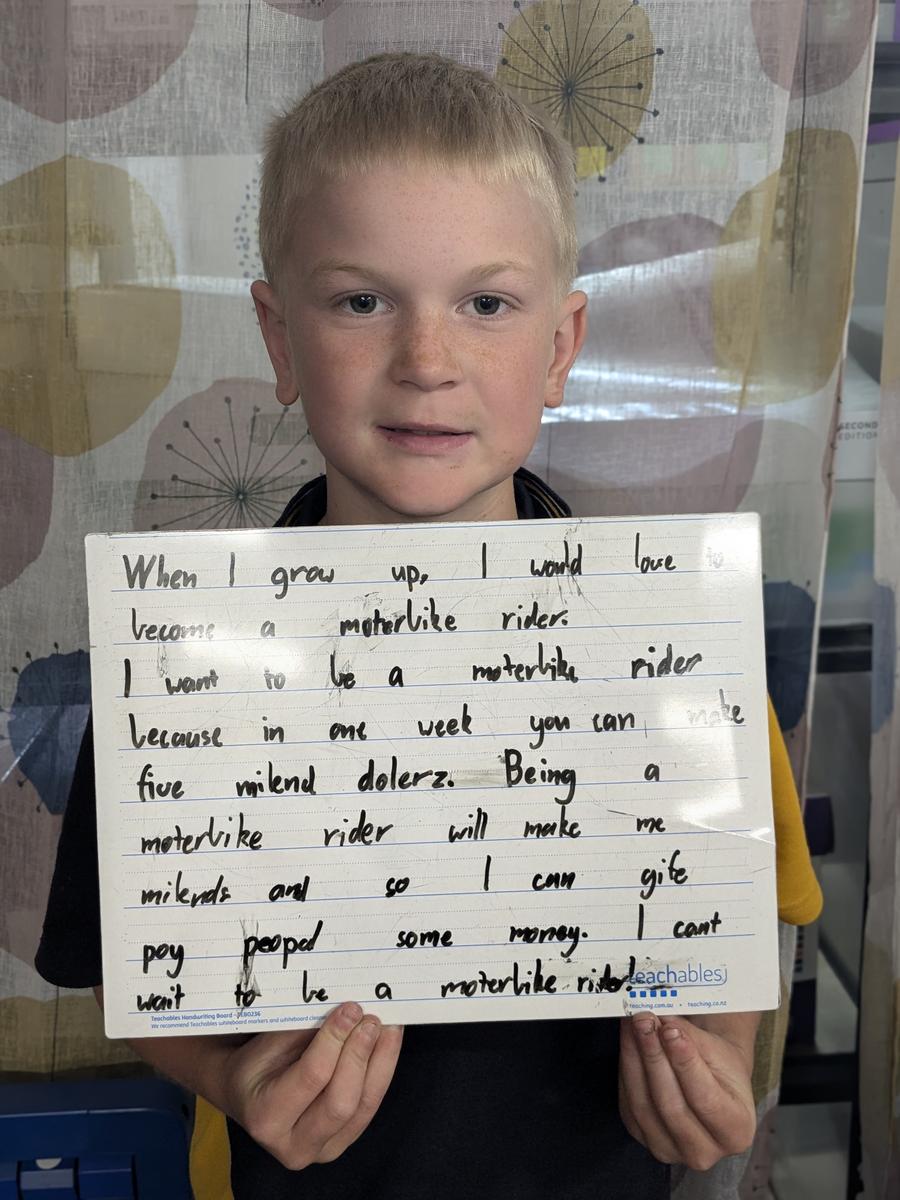 When I grow up, I would love to
become a moterbike rider.
I want to be a moterbike rider
because in one week you can make
five milend dolerz. Being a
moterbike rider will make me
milends and so I can gife
poy peopel some money. I cant
wait to be a moterbike rider!
teachables
Teachables Handwriting Board - TEB0236
We recommend Teachables whiteboard markers and whiteboard
teaching.com.au • teaching.co.nz
SECOND
EDITION